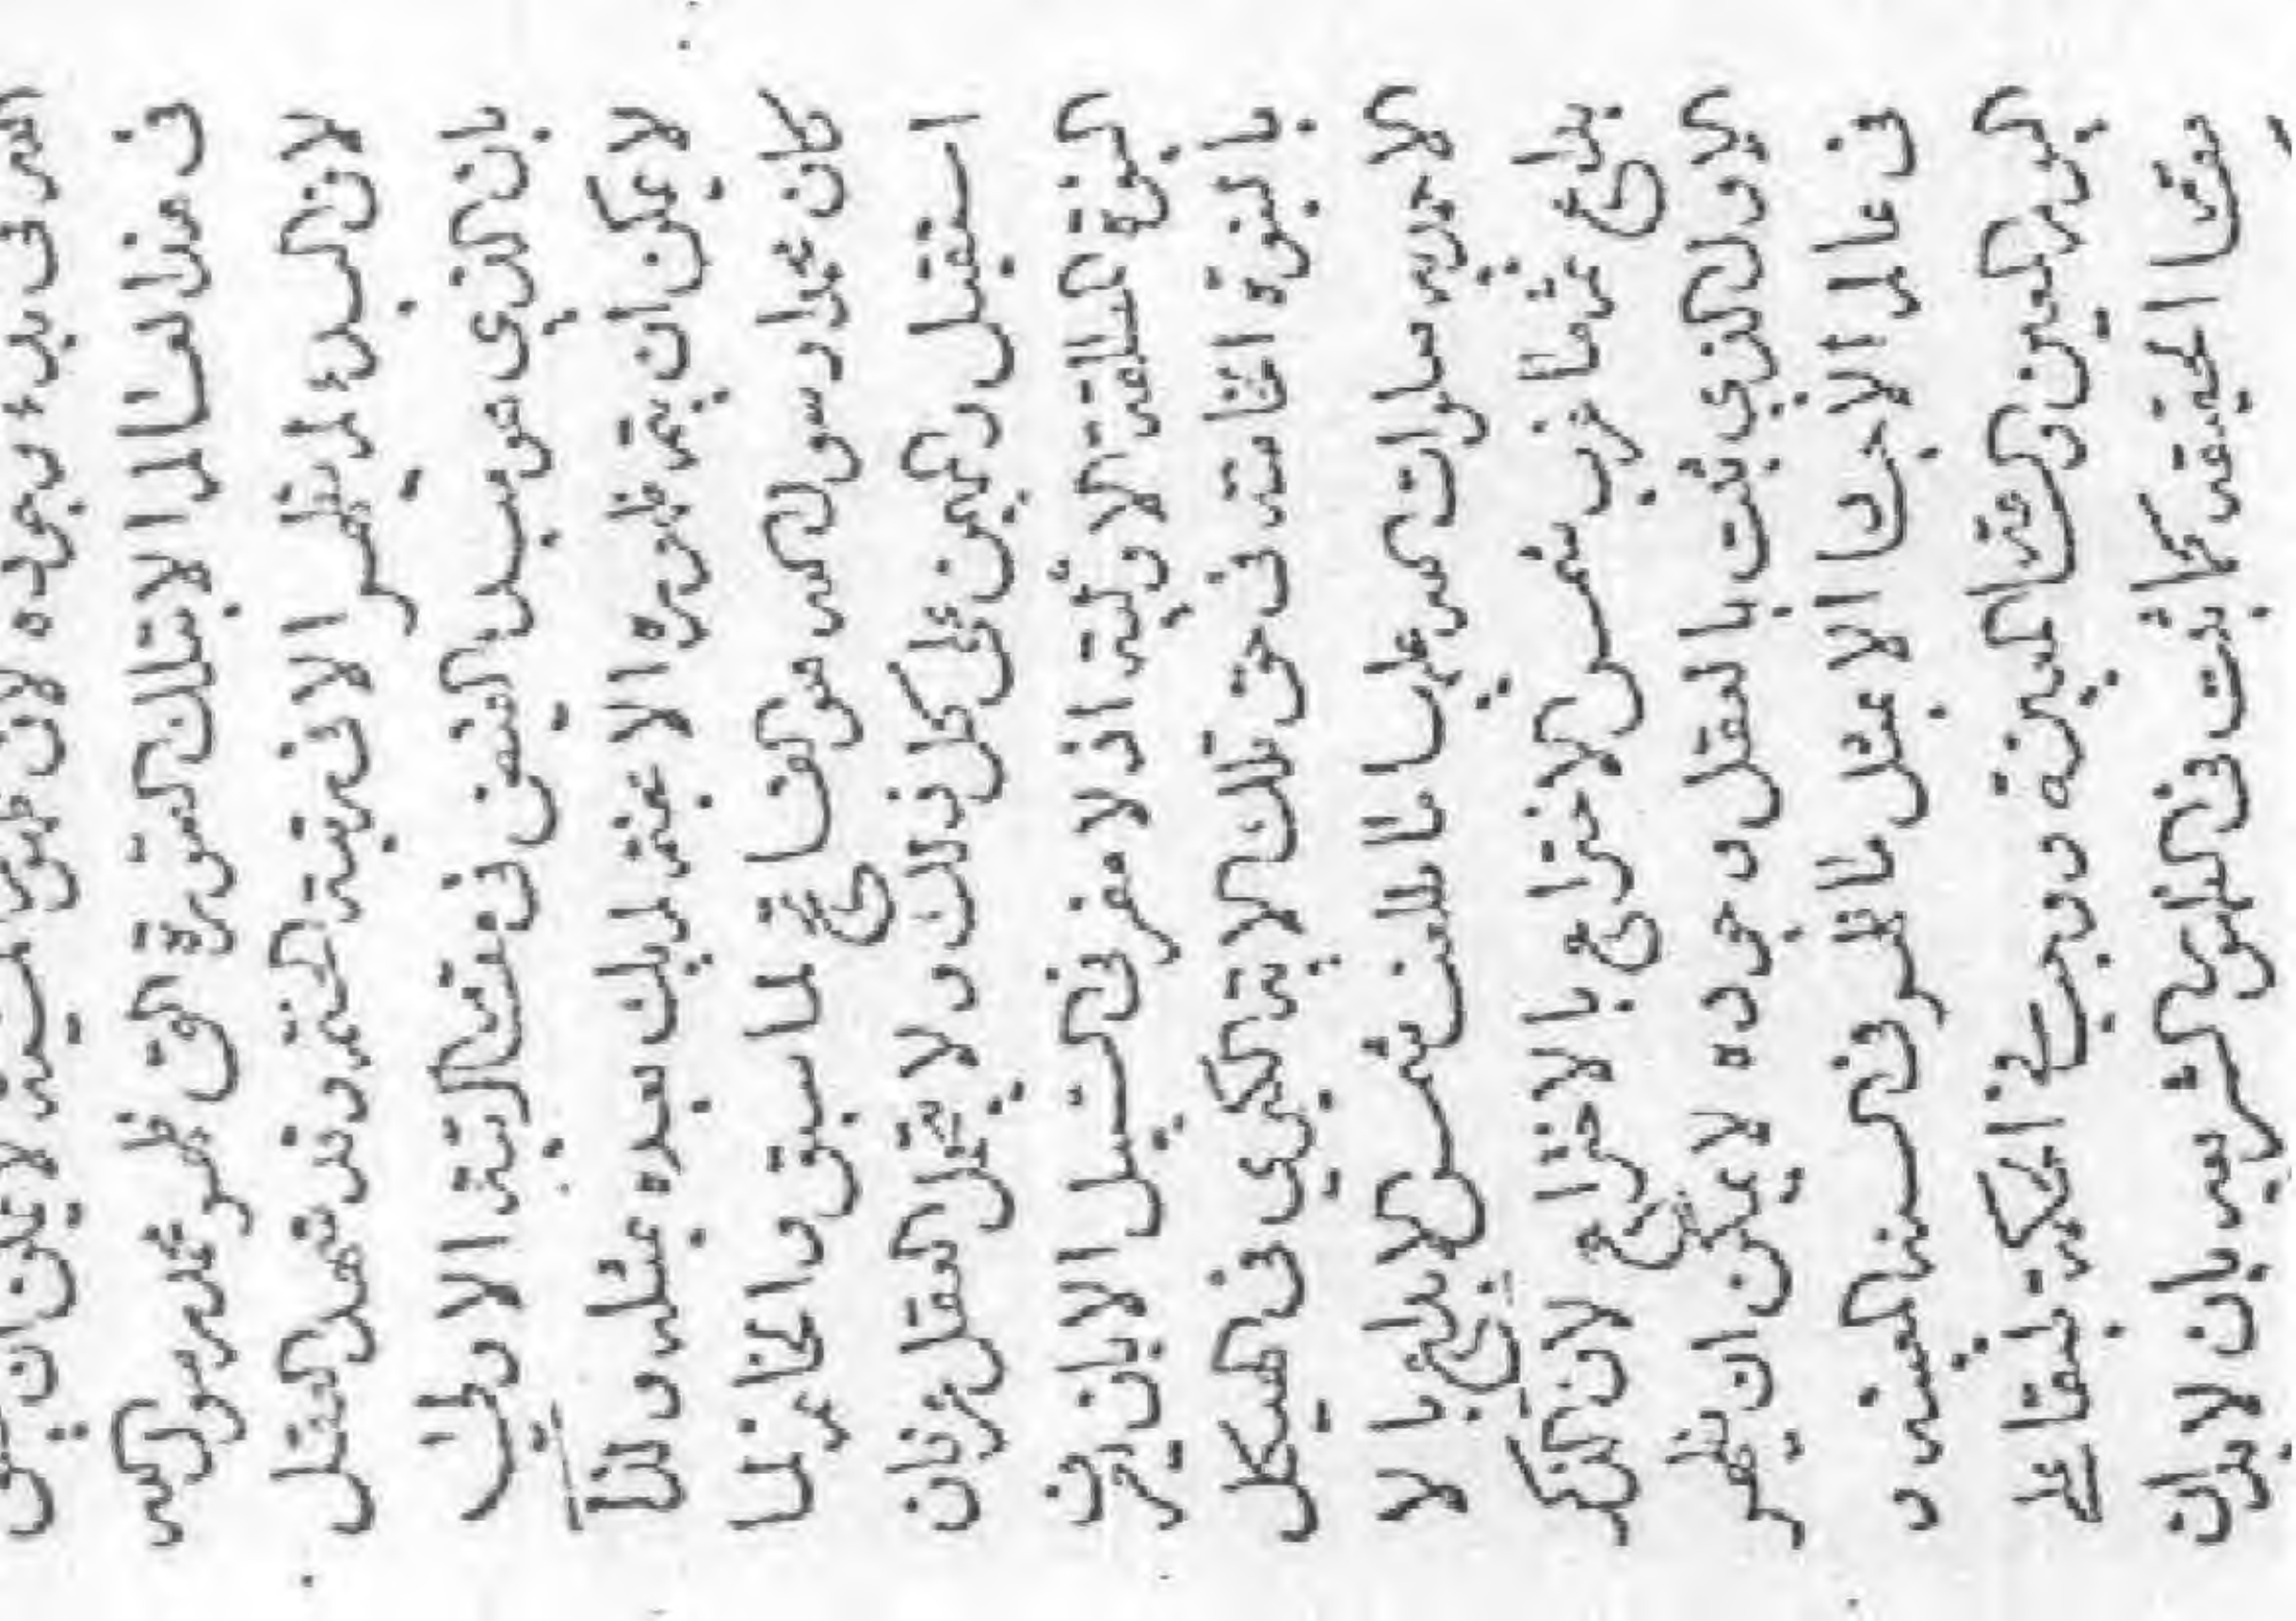 السر في بدء وجوده لان ظهور لا يمكن ان
في هذا العالم الا بتلك الصورة التي ظهر محمد رسول الله
لان البدء لم يظهر الا في رتبة الختم وقد شهد العقل
بان الذي هو مبدء الفيض في مقام الرتبة الاولية
لا يمكن ان يتم ظهوره الا بختم لم يك بعده بمثله ولذا
كان محمد رسول الله هو الفاتح لما سبق والخاتم لما
استقبل والمهيمن على كل ذلك ولا يحتمل العقل عرفان
النبوة المطلقة الاولية اذ لا مفر في السبيل الا بان يعرف
بالنبوة الخاصة في حق تلك الاية الكبرى في الهيكل
الاحدية صلوات الله عليها ما طلعت شمس الابداع بالا
بداع ثم ما غرب شمس الاختراع بالاختراع لان الذكر
الاول الذي يثبت بالعقل وجوده لا يمكن ان يظهر
في عالم الاجساد الا بمثل ما ظهر في السنة المعينة و
اليوم المعين المعينة ويجب في الحكمة تلقاء
الحقيقة كما ثبت في الظهور بان لابد ان